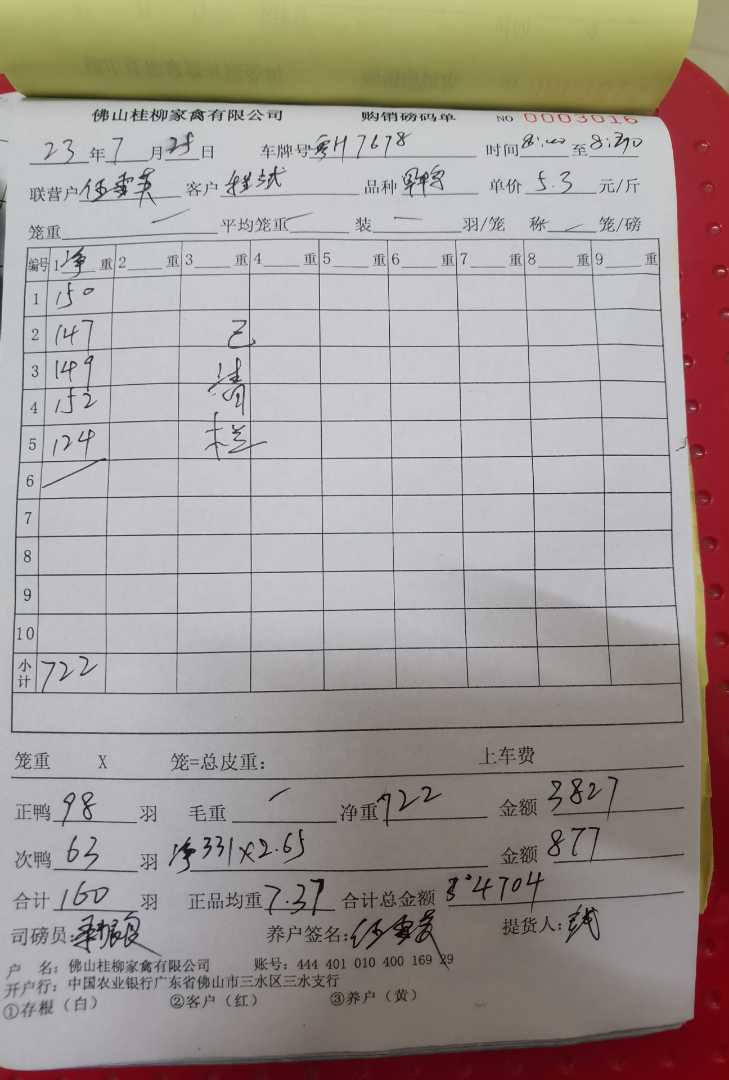 佛山桂柳家禽有限公司 购销磅码单 NO 0003016
23 年 7 月 25 日 车牌号 粤H7678 时间 8:00 至 8:30
联营户 客户 品种 单价 5.3 元/斤
笼重 一 平均笼重 一 装 一 羽/笼 称 一 笼/磅
编号 1 净 重 2 重 3 重 4 重 5 重 6 重 7 重 8 重 9 重
1 150
2 147 已
3 149 清
4 152
5 124 栏
6
7
8
9
10
小计 722
笼重 X 笼=总皮重: 上车费
正鸭 98 羽 毛重 一 净重 722 金额 3827
次鸭 63 羽 净331×2.65 金额 877
合计 160 羽 正品均重 7.37 合计总金额 4704
司磅员: 养户签名: 提货人:
户 名: 佛山桂柳家禽有限公司 账号: 444 401 010 400 169 29
开户行: 中国农业银行广东省佛山市三水区三水支行
①存根（白） ②客户（红） ③养户（黄）